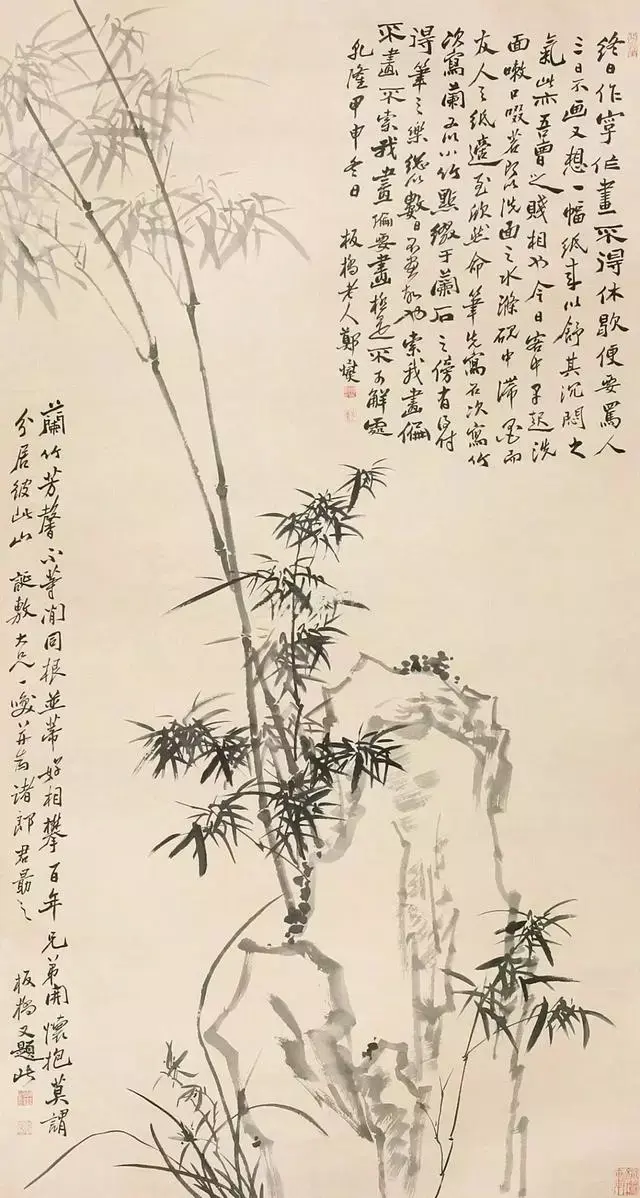 終日作字作畫不得休歇便要罵人
三日不画又想一幅紙来以舒其沉悶之
氣此亦吾曹之賤相也今日客中早起洗
面嗽口啜茗即以洗面之水滌硯中滞墨而
友人之紙適至欣然命筆先寫石次寫竹
次寫蘭又以小竹點綴于蘭石之傍有得时
得筆之樂總以數日不畫故也索我畫偏
不畫不索我畫偏要畫極是不可解處
乾隆甲申冬日 板橋老人鄭燮
蘭竹芳馨不等閒同根並蒂好相攀百年兄弟開懷抱莫謂
分居彼此山 誕敷大兄一噱并為諸郎君勗之 板橋又題此